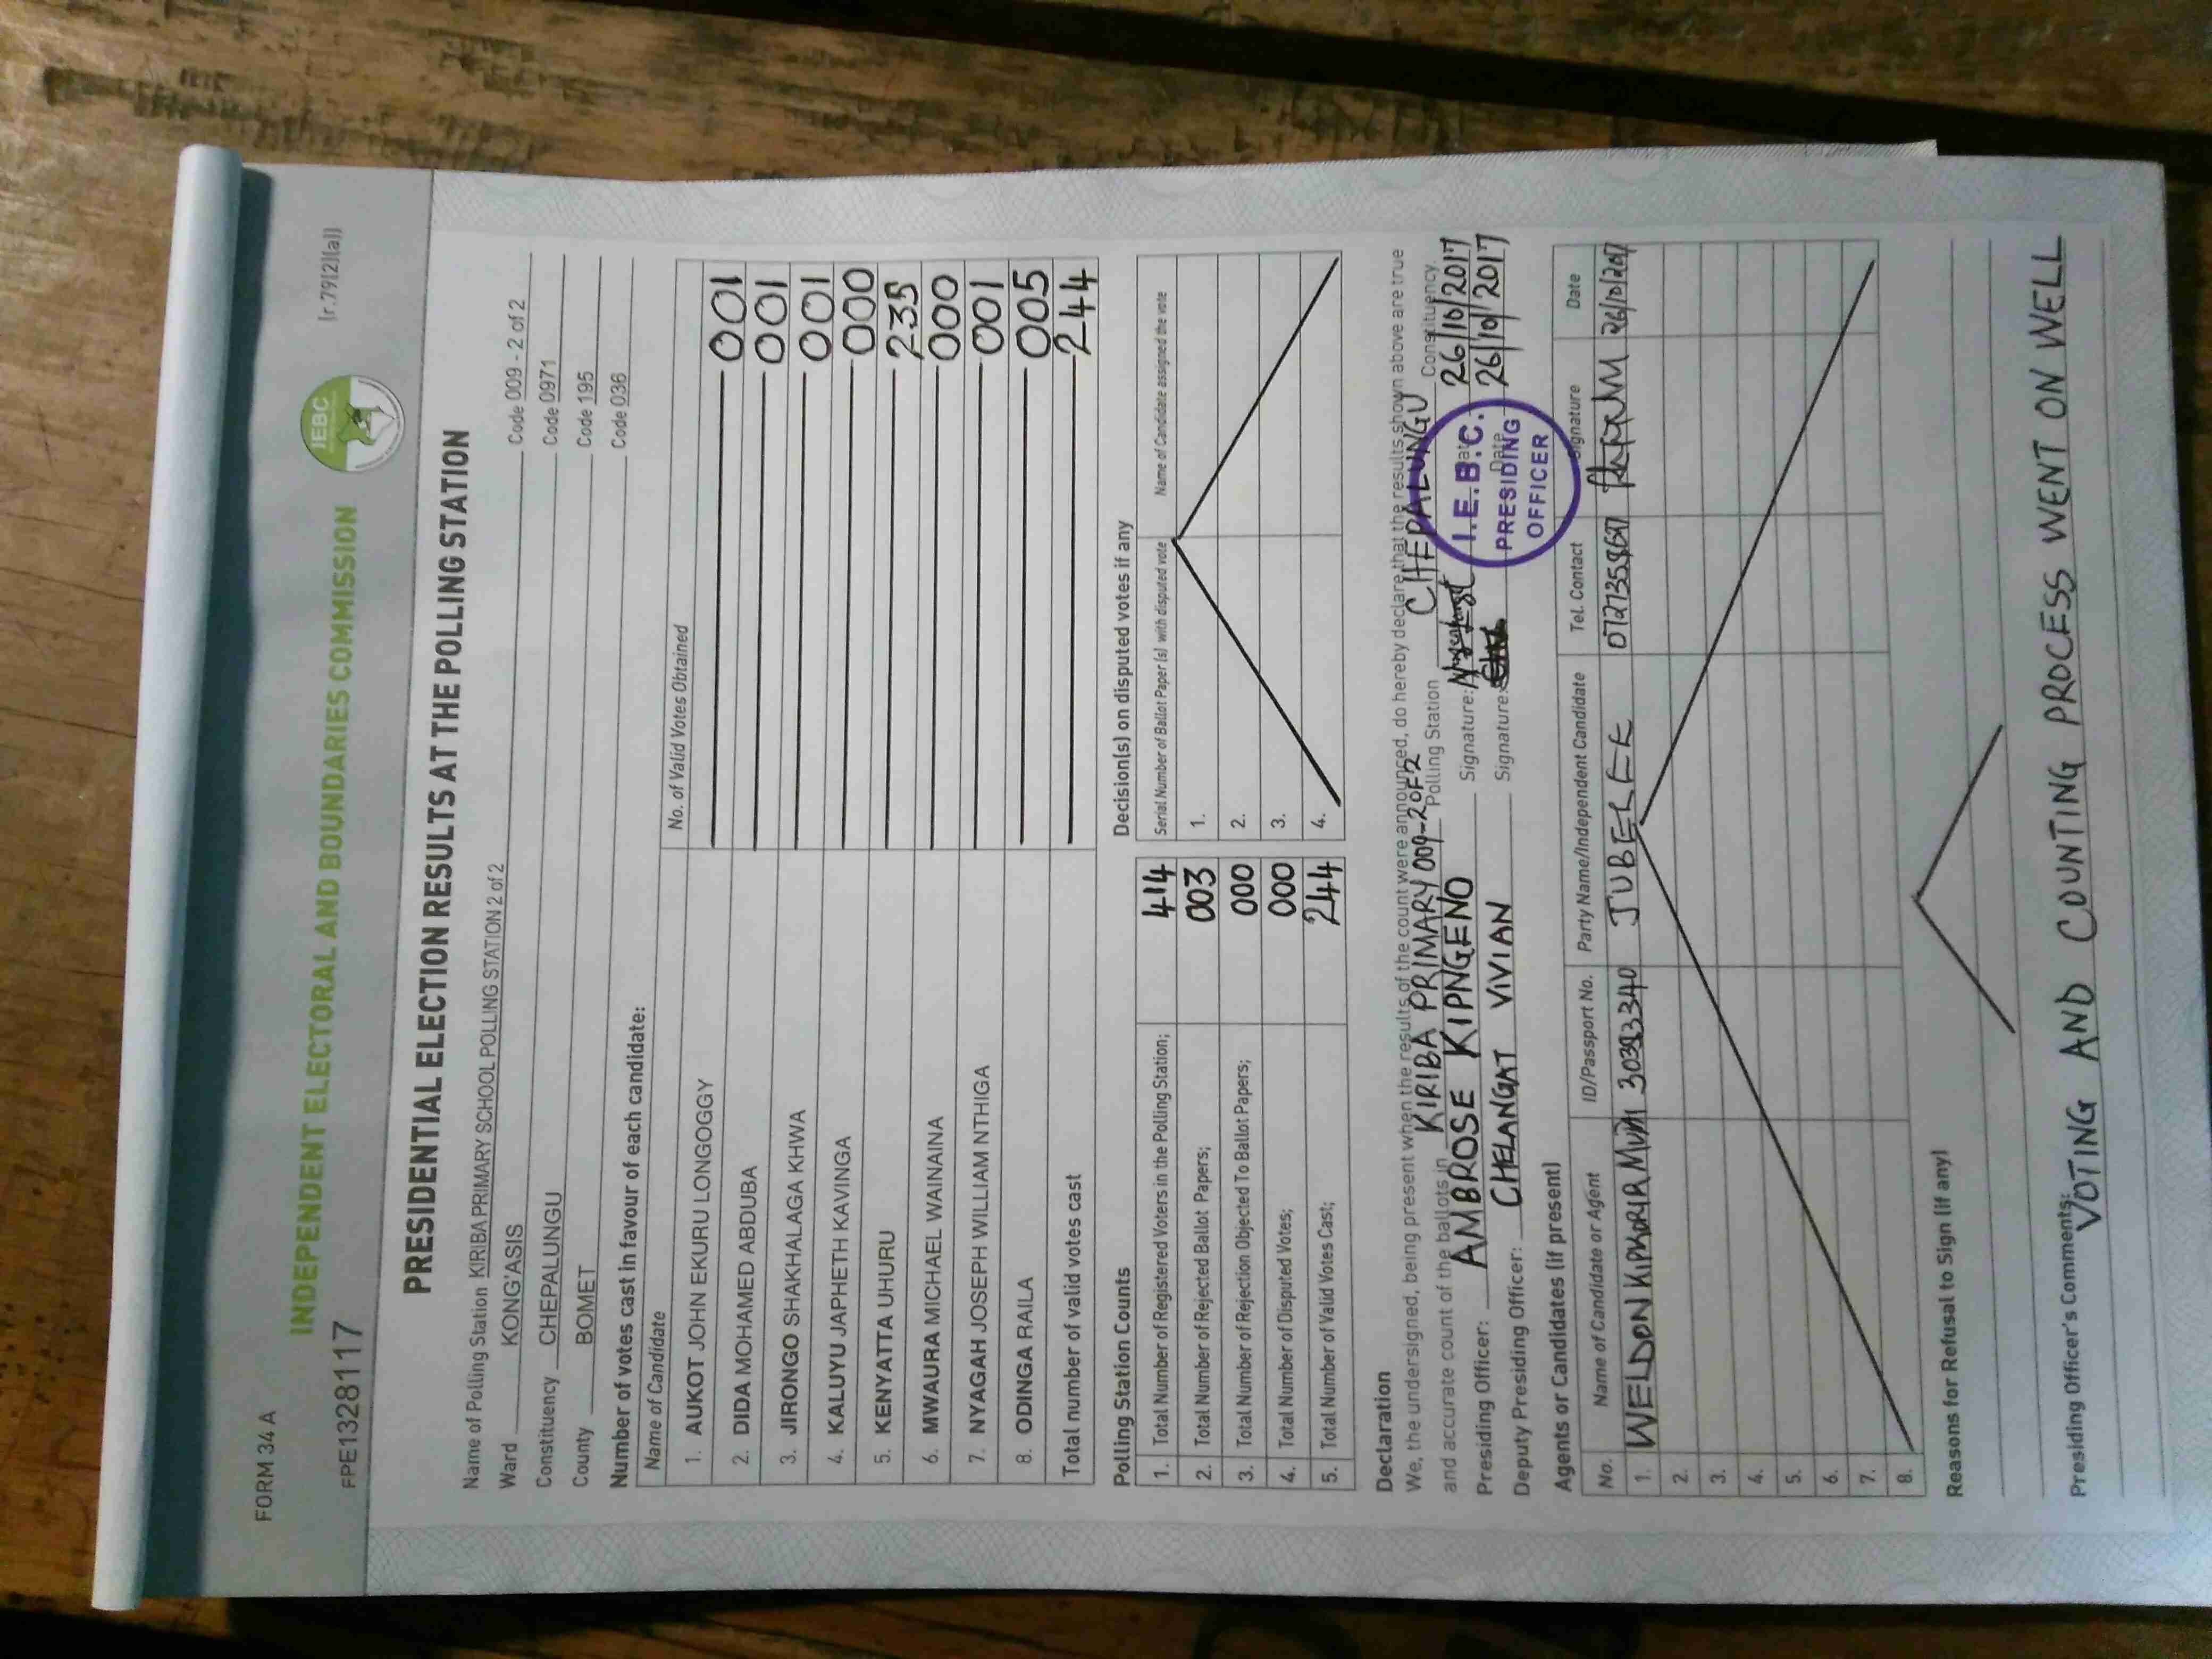 FORM 34 A
INDEPENDENT ELECTORAL AND BOUNDARIES COMMISSION
IEBC
(r.79(2)(a))
FPE1328117
PRESIDENTIAL ELECTION RESULTS AT THE POLLING STATION
Name of Polling Station KIRIBA PRIMARY SCHOOL POLLING STATION 2 of 2 Code 009 - 2 of 2
Ward KONG'ASIS Code 0971
Constituency CHEPALUNGU Code 195
County BOMET Code 036
Number of votes cast in favour of each candidate:
Name of Candidate No. of Valid Votes Obtained
1. AUKOT JOHN EKURU LONGOGGY 001
2. DIDA MOHAMED ABDUBA 001
3. JIRONGO SHAKHALAGA KHWA 001
4. KALUYU JAPHETH KAVINGA 000
5. KENYATTA UHURU 235
6. MWAURA MICHAEL WAINAINA 000
7. NYAGAH JOSEPH WILLIAM NTHIGA 001
8. ODINGA RAILA 005
Total number of valid votes cast 244
Polling Station Counts
1. Total Number of Registered Voters in the Polling Station; 414
2. Total Number of Rejected Ballot Papers; 003
3. Total Number of Rejection Objected To Ballot Papers; 000
4. Total Number of Disputed Votes; 000
5. Total Number of Valid Votes Cast; 244
Decision(s) on disputed votes if any
Serial Number of Ballot Paper (s) with disputed vote Name of Candidate assigned the vote
1.
2.
3.
4.
Declaration
We, the undersigned, being present when the results of the count were announced, do hereby declare that the results shown above are true
and accurate count of the ballots in KIRIBA PRIMARY 009-2OF2 Polling Station CHEPALUNGU Constituency.
Presiding Officer: AMBROSE KIPNGENO Signature: Date 26/10/2017
Deputy Presiding Officer: CHELANGAT VIVIAN Signature: Date 26/10/2017
I.E.B.C.
PRESIDING
OFFICER
Agents or Candidates (if present)
No. Name of Candidate or Agent ID/Passport No. Party Name/Independent Candidate Tel. Contact Signature Date
1. WELDON JUBELEE 26/10/2017
2.
3.
4.
5.
6.
7.
8.
Reasons for Refusal to Sign (if any)
Presiding Officer's Comments:
VOTING AND COUNTING PROCESS WENT ON WELL